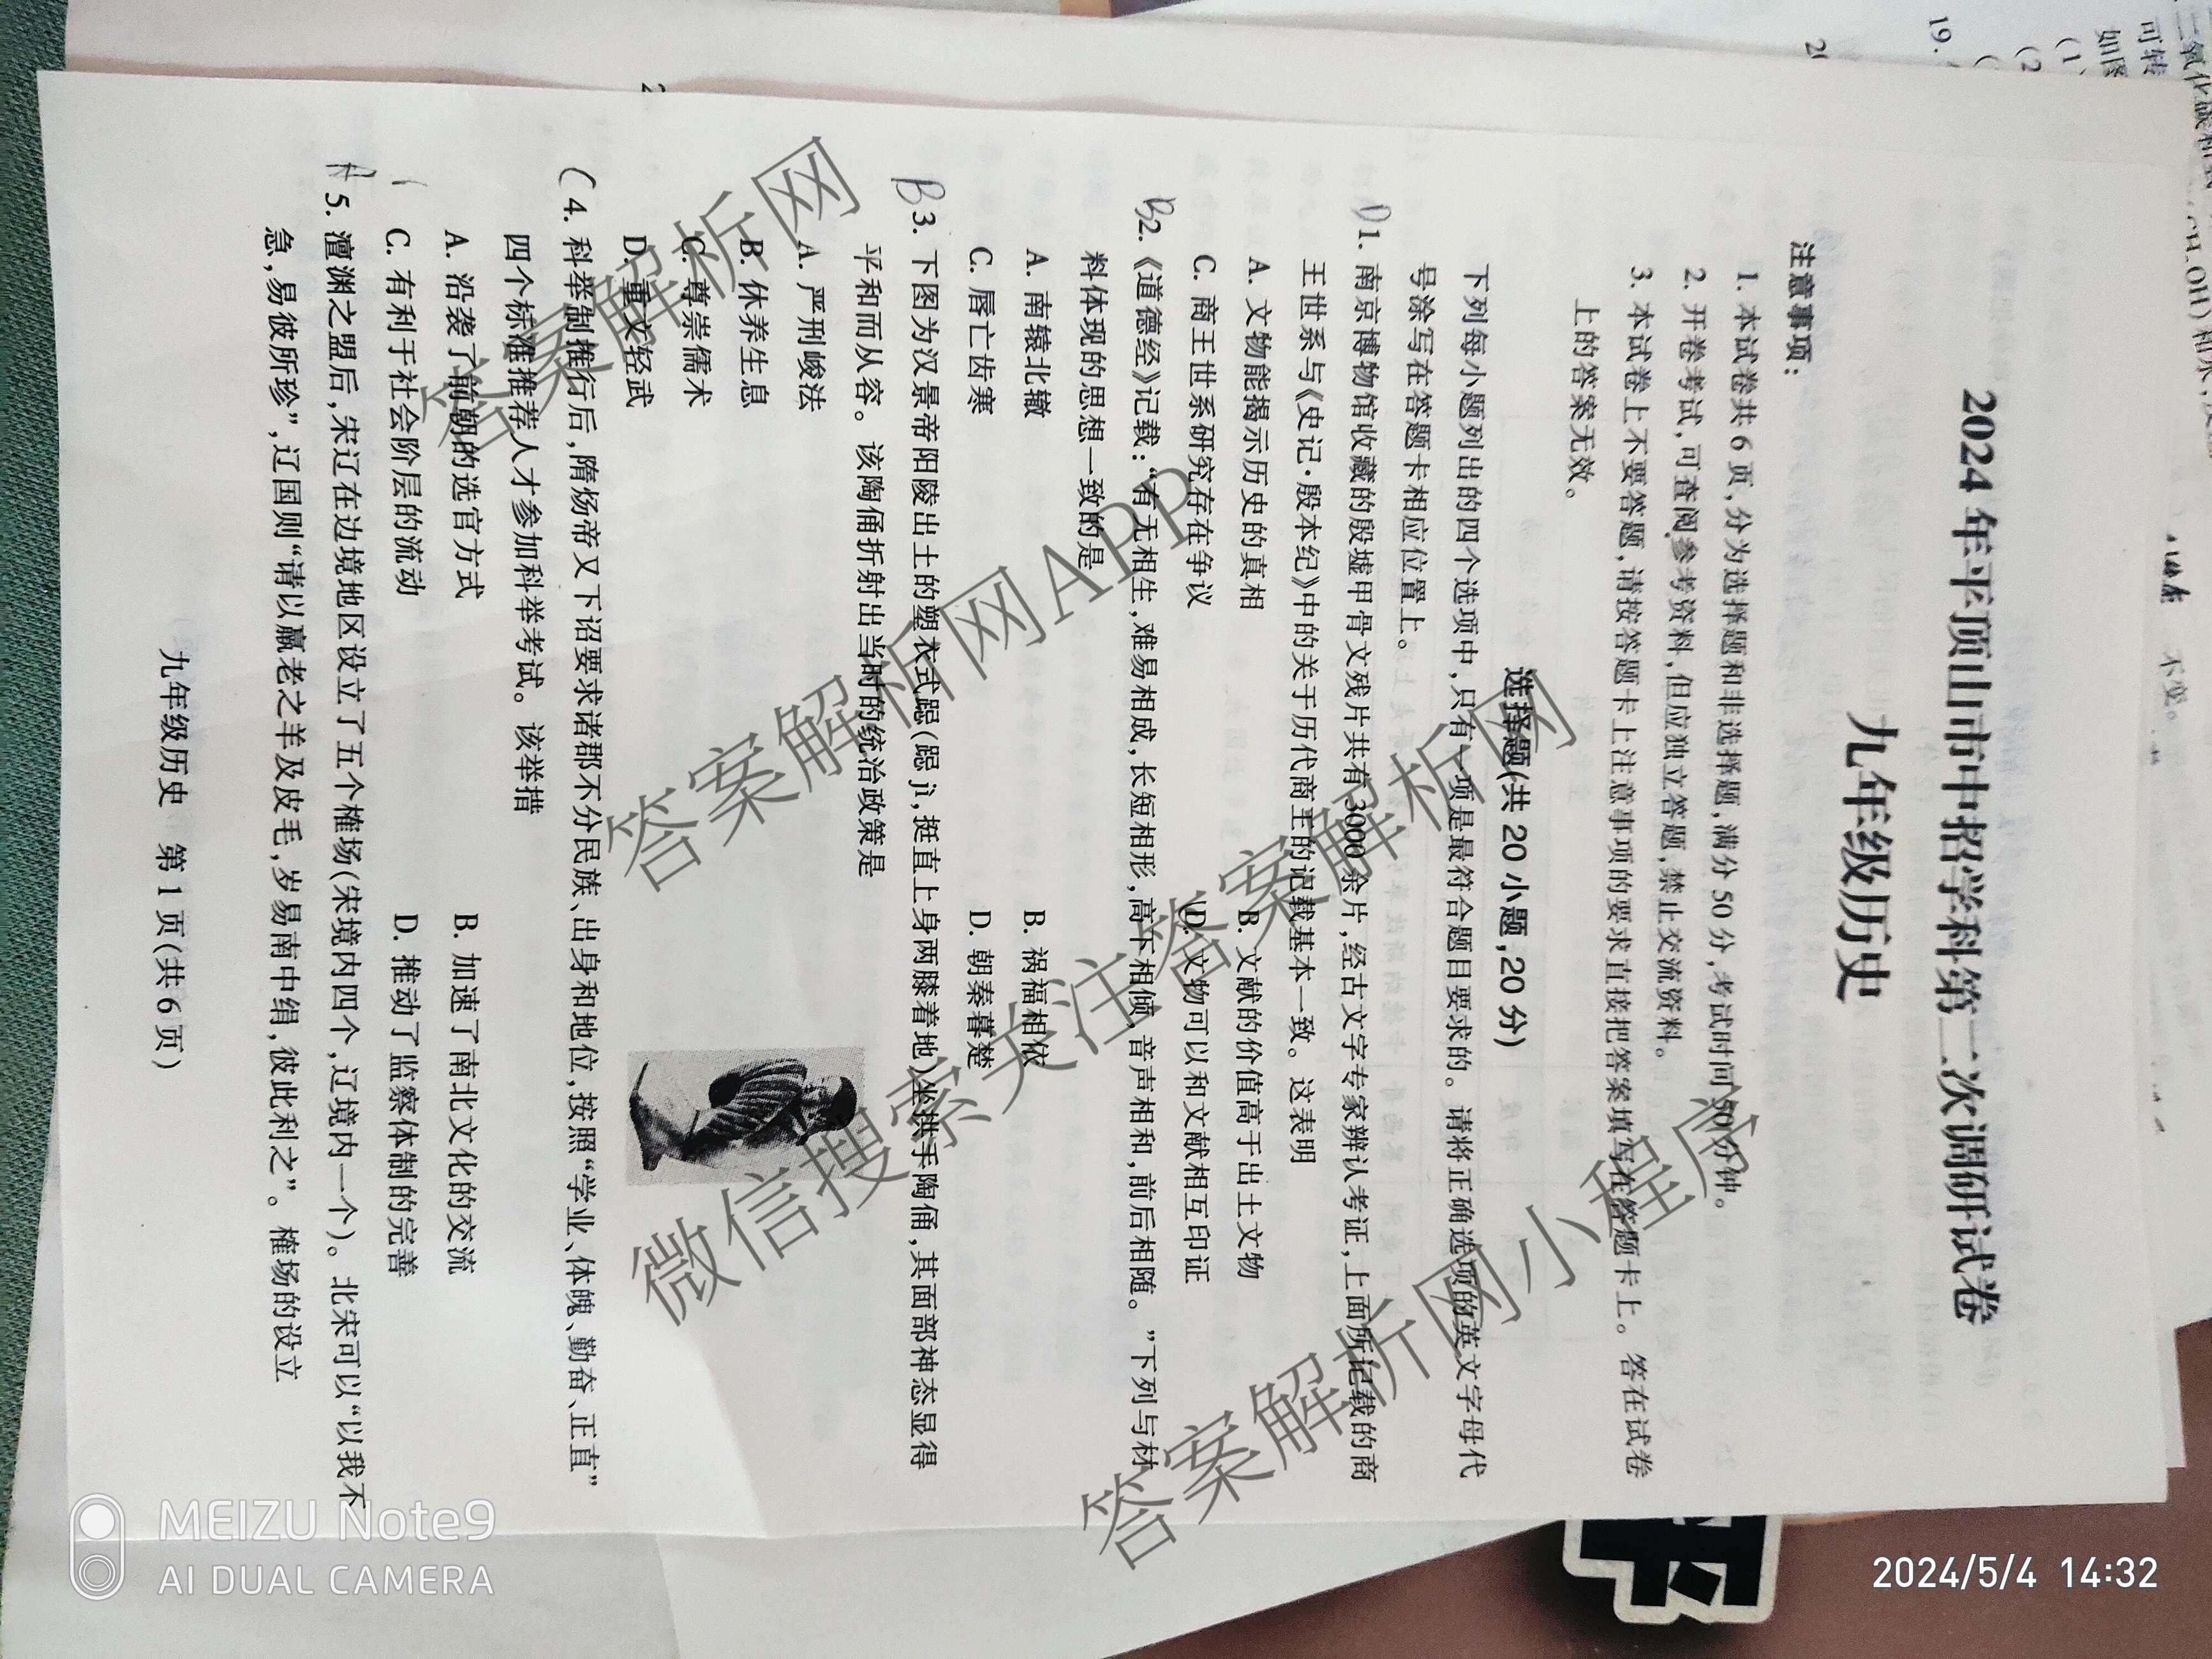 2024年平顶山市中招学科第二次调研试卷
九年级历史
注意事项：
1. 本试卷共6页，分为选择题和非选择题，满分50分，考试时间50分钟。
2. 开卷考试，可查阅参考资料，但应独立答题，禁止交流资料。
3. 本试卷上不要答题，请按答题卡上注意事项的要求直接把答案填写在答题卡上。答在试卷
上的答案无效。
选择题(共20小题，20分)
下列每小题列出的四个选项中，只有一项是最符合题目要求的。请将正确选项的英文字母代
号涂写在答题卡相应位置上。
D1. 南京博物馆收藏的殷墟甲骨文残片共有3000余片，经古文字专家辨认考证，上面所记载的商
王世系与《史记·殷本纪》中的关于历代商王的记载基本一致。这表明
A. 文物能揭示历史的真相 B. 文献的价值高于出土文物
C. 商王世系研究存在争议 D. 文物可以和文献相互印证
B2.《道德经》记载：“有无相生，难易相成，长短相形，高下相倾，音声相和，前后相随。”下列与材
料体现的思想一致的是
A. 南辕北辙 B. 祸福相依
C. 唇亡齿寒 D. 朝秦暮楚
B3. 下图为汉景帝阳陵出土的塑衣式跽(跽jì，挺直上身两膝着地)坐拱手陶俑，其面部神态显得
平和而从容。该陶俑折射出当时的统治政策是
A. 严刑峻法
B. 休养生息
C. 尊崇儒术
D. 重文轻武
C4. 科举制推行后，隋炀帝又下诏要求诸郡不分民族、出身和地位，按照“学业、体魄、勤奋、正直”
四个标准推荐人才参加科举考试。该举措
A. 沿袭了前朝的选官方式 B. 加速了南北文化的交流
C. 有利于社会阶层的流动 D. 推动了监察体制的完善
A5. 澶渊之盟后，宋辽在边境地区设立了五个榷场(宋境内四个，辽境内一个)。北宋可以“以我不
急，易彼所珍”，辽国则“请以羸老之羊及皮毛，岁易南中绢，彼此利之”。榷场的设立
九年级历史 第1页(共6页)
答案解析网
答案解析网APP
微信搜索关注答案解析网
答案解析网小程序
MEIZU Note9
AI DUAL CAMERA
2024/5/4 14:32
19.
不变。